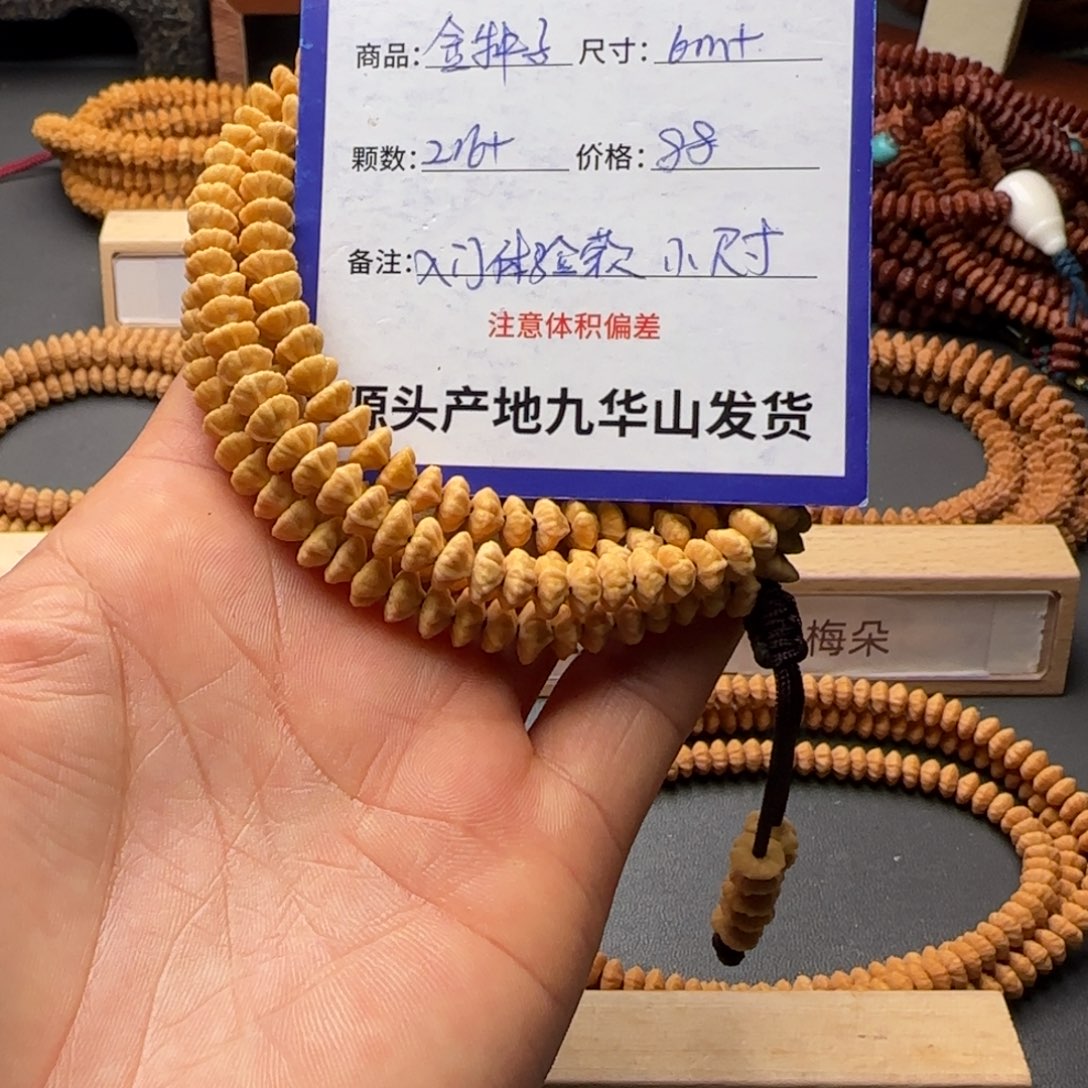 商品：金种子 尺寸：6m+
颗数：216+ 价格：88
备注：入门体验款 小尺寸
注意体积偏差
源头产地九华山发货
梅朵